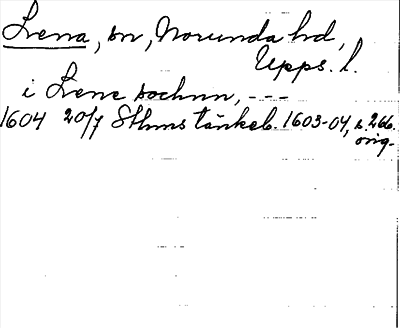 Lena, sn, Norunda hd,
Upps. l.
i Lene sochnn, ---
1604 20/7 Sthms tänkeb. 1603-04, s. 266.
orig.